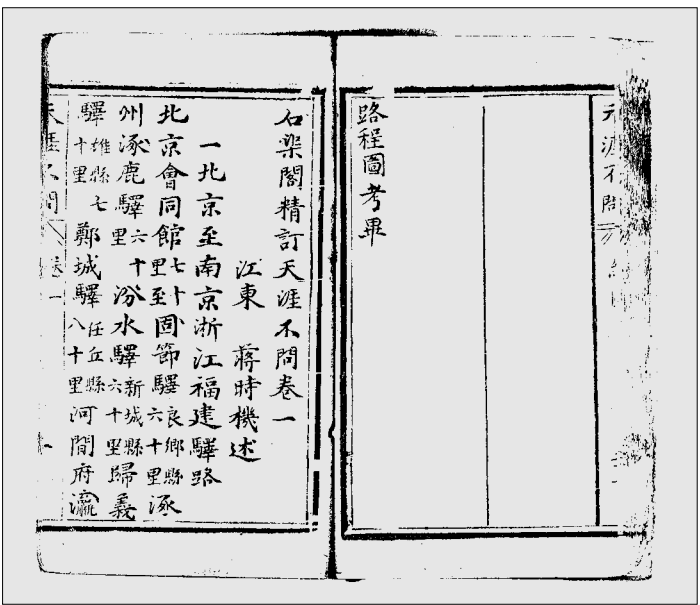 天涯不問
路程圖考畢
石渠閣精訂天涯不問卷一
江東 蔣時機述
一北京至南京浙江福建驛路
北京會同館七十里至固節驛良鄉縣六十里涿
州涿鹿驛六十里汾水驛新城縣六十里歸義
驛雄縣七十里鄚城驛任丘縣八十里河間府瀛
天涯不問 卷一